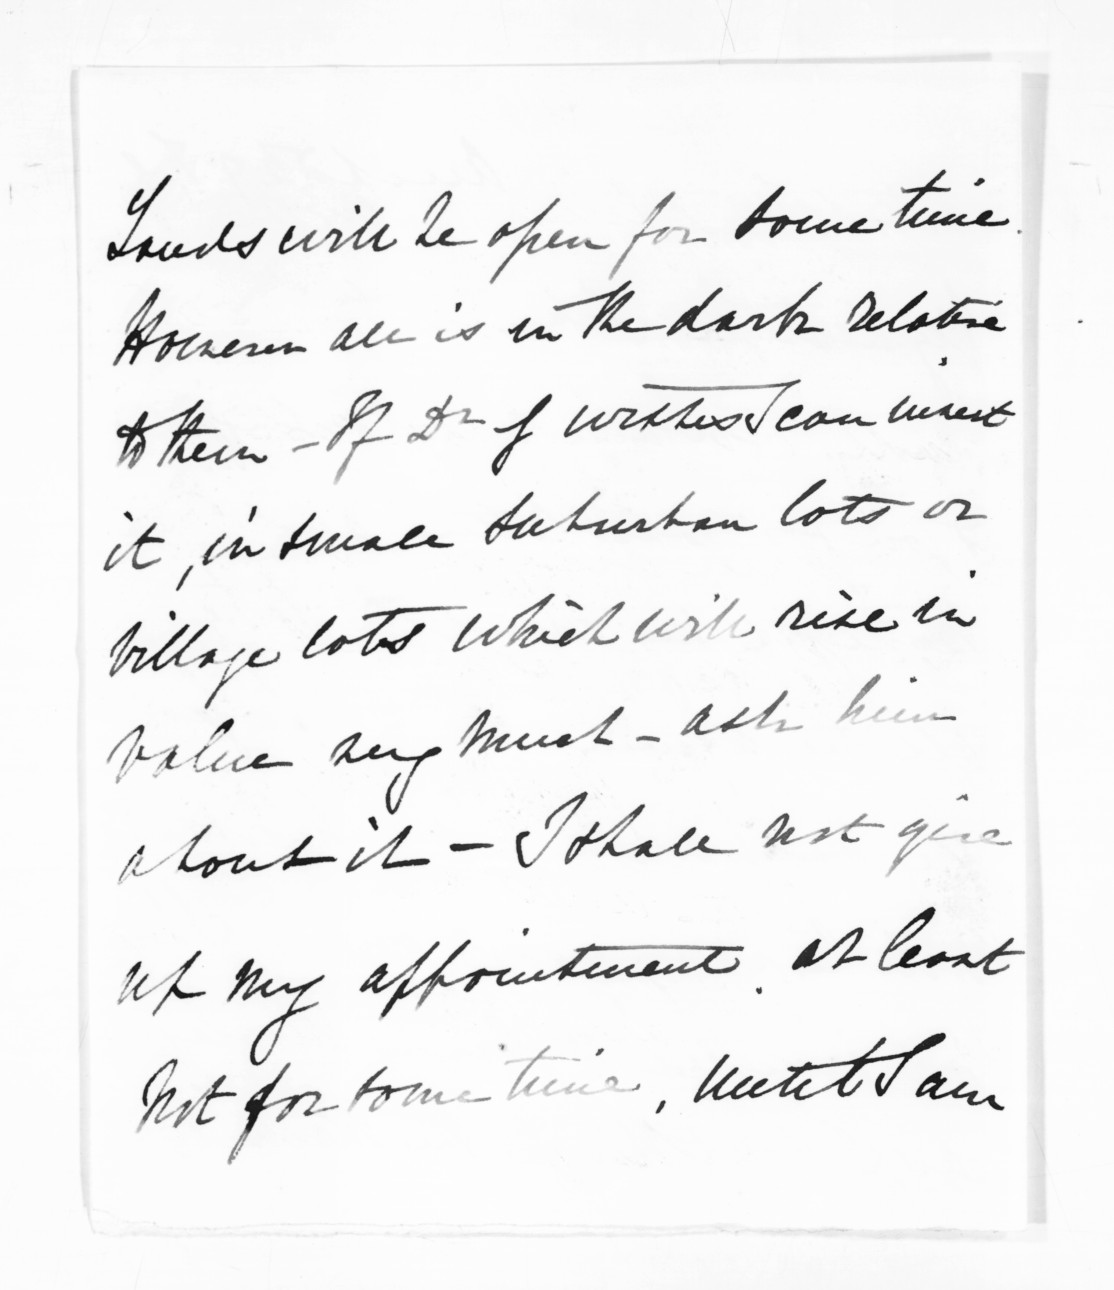 Lands will be open for some time.
However all is in the dark relative
to them - If Dr f wishes I can invest
it, in small suburban lots or
village lots which will rise in
value very much - ask him
about it - I shall not give
up my appointment. at least
not for some time, until I am